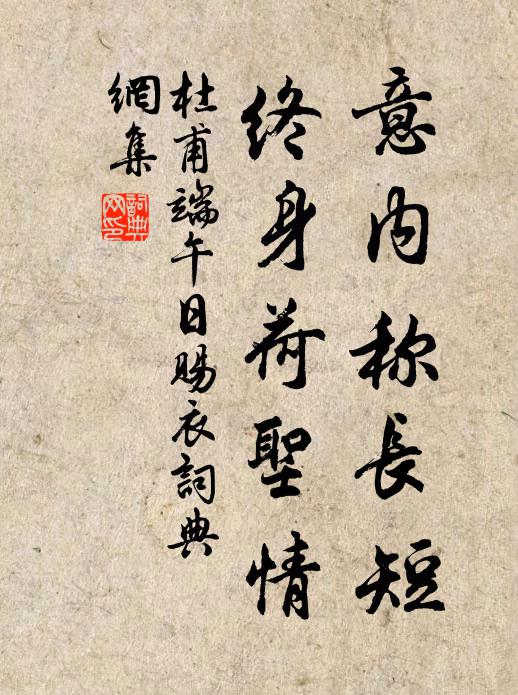 意内称長短
終身荷聖情
杜甫端午日賜衣詞典
網集
詞典
网印